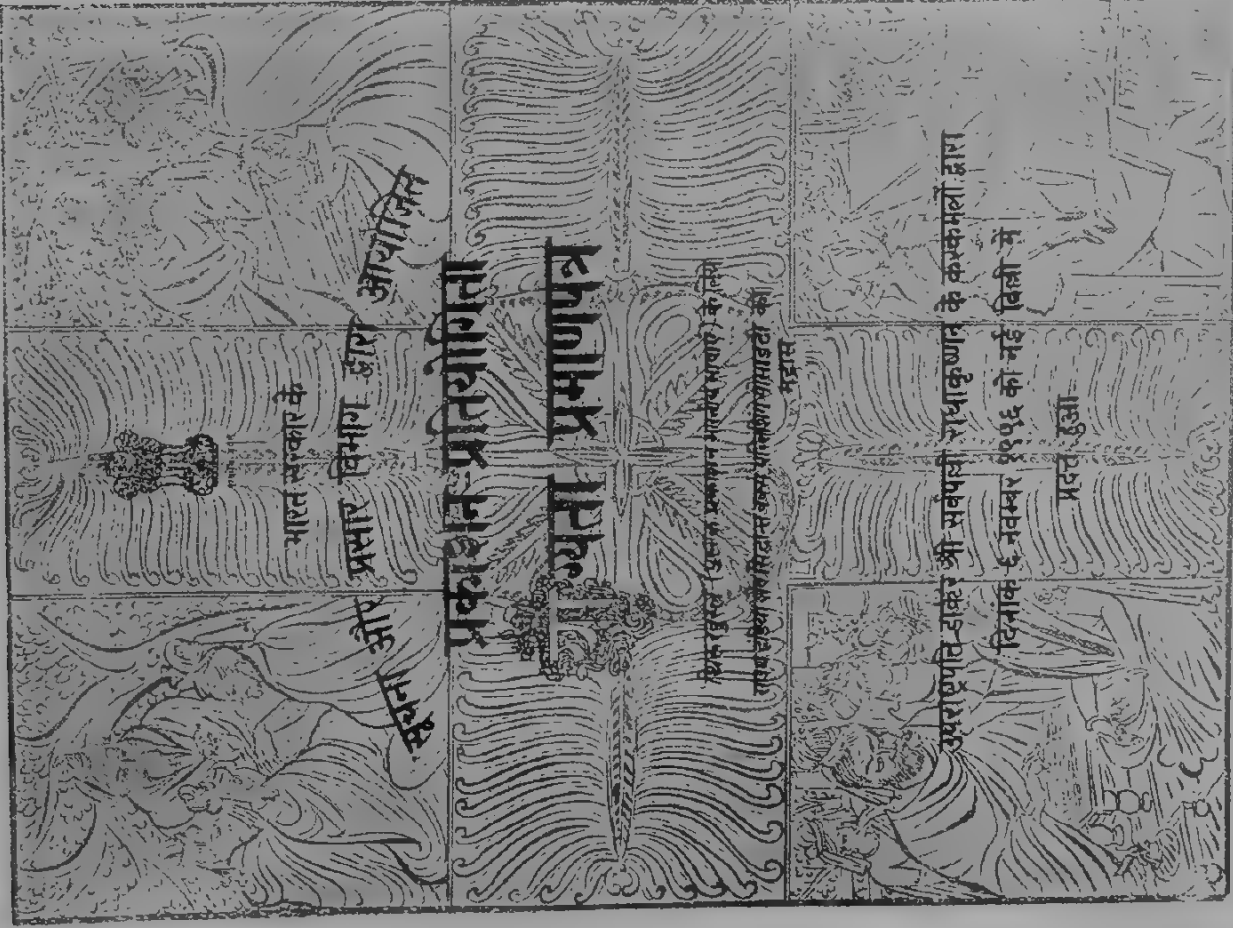 भारत सरकार के
सूचना और प्रसार विभाग द्वारा आयोजित
प्रकाशन प्रतियोगिता
योग्यता प्रमाणपत्र
भारतीय भाषाएं) के लिये
साइव इंडिया सैव सिद्धान्त वर्क्स पब्लिशिंग सोसाइटी को
मद्रास
उपराष्ट्रपति डॉक्टर श्री सर्वपल्ली राधाकृष्णन के करकमलों द्वारा
दिनांक ६ नवम्बर १९५६ को नई दिल्ली में
प्रदत्त हुआ